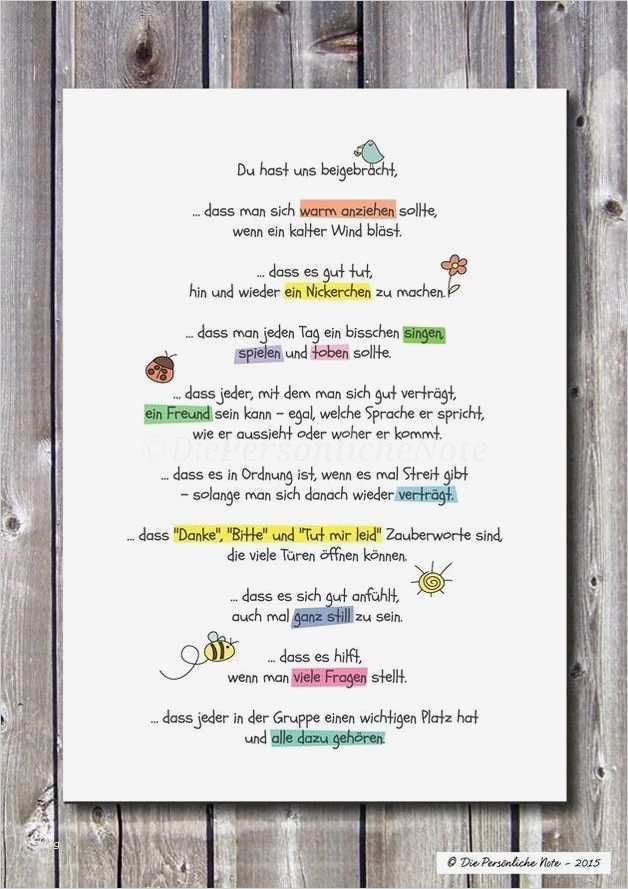 Du hast uns beigebracht,
... dass man sich warm anziehen sollte,
wenn ein kalter Wind bläst.
... dass es gut tut,
hin und wieder ein Nickerchen zu machen.
... dass man jeden Tag ein bisschen singen,
spielen und toben sollte.
... dass jeder, mit dem man sich gut verträgt,
ein Freund sein kann – egal, welche Sprache er spricht,
wie er aussieht oder woher er kommt.
©DiePersönlicheNote
... dass es in Ordnung ist, wenn es mal Streit gibt
– solange man sich danach wieder verträgt.
... dass "Danke", "Bitte" und "Tut mir leid" Zauberworte sind,
die viele Türen öffnen können.
... dass es sich gut anfühlt,
auch mal ganz still zu sein.
... dass es hilft,
wenn man viele Fragen stellt.
... dass jeder in der Gruppe einen wichtigen Platz hat
und alle dazu gehören.
© Die Persönliche Note - 2015